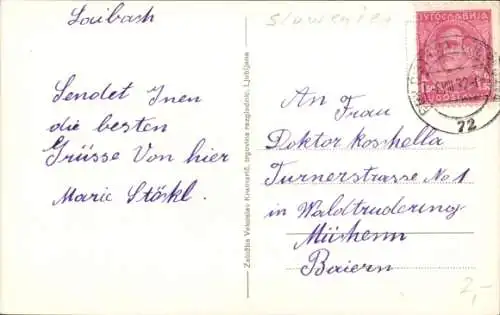 Laibach
Slowenien
Sendet Inen
die besten
Grüsse Von hier
Marie Stöckl.
Založba Vekoslav Kramarič, trgovina razglednic, Ljubljana
ЈУГОСЛАВИЈА
JUGOSLAVIJA
72
An Frau
Doktor Koschella
Turnerstrasse No 1
in Waldtrudering
Müchenn
Baiern
2,-